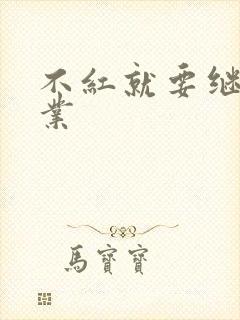 不紅就要继
業
馬寶寶